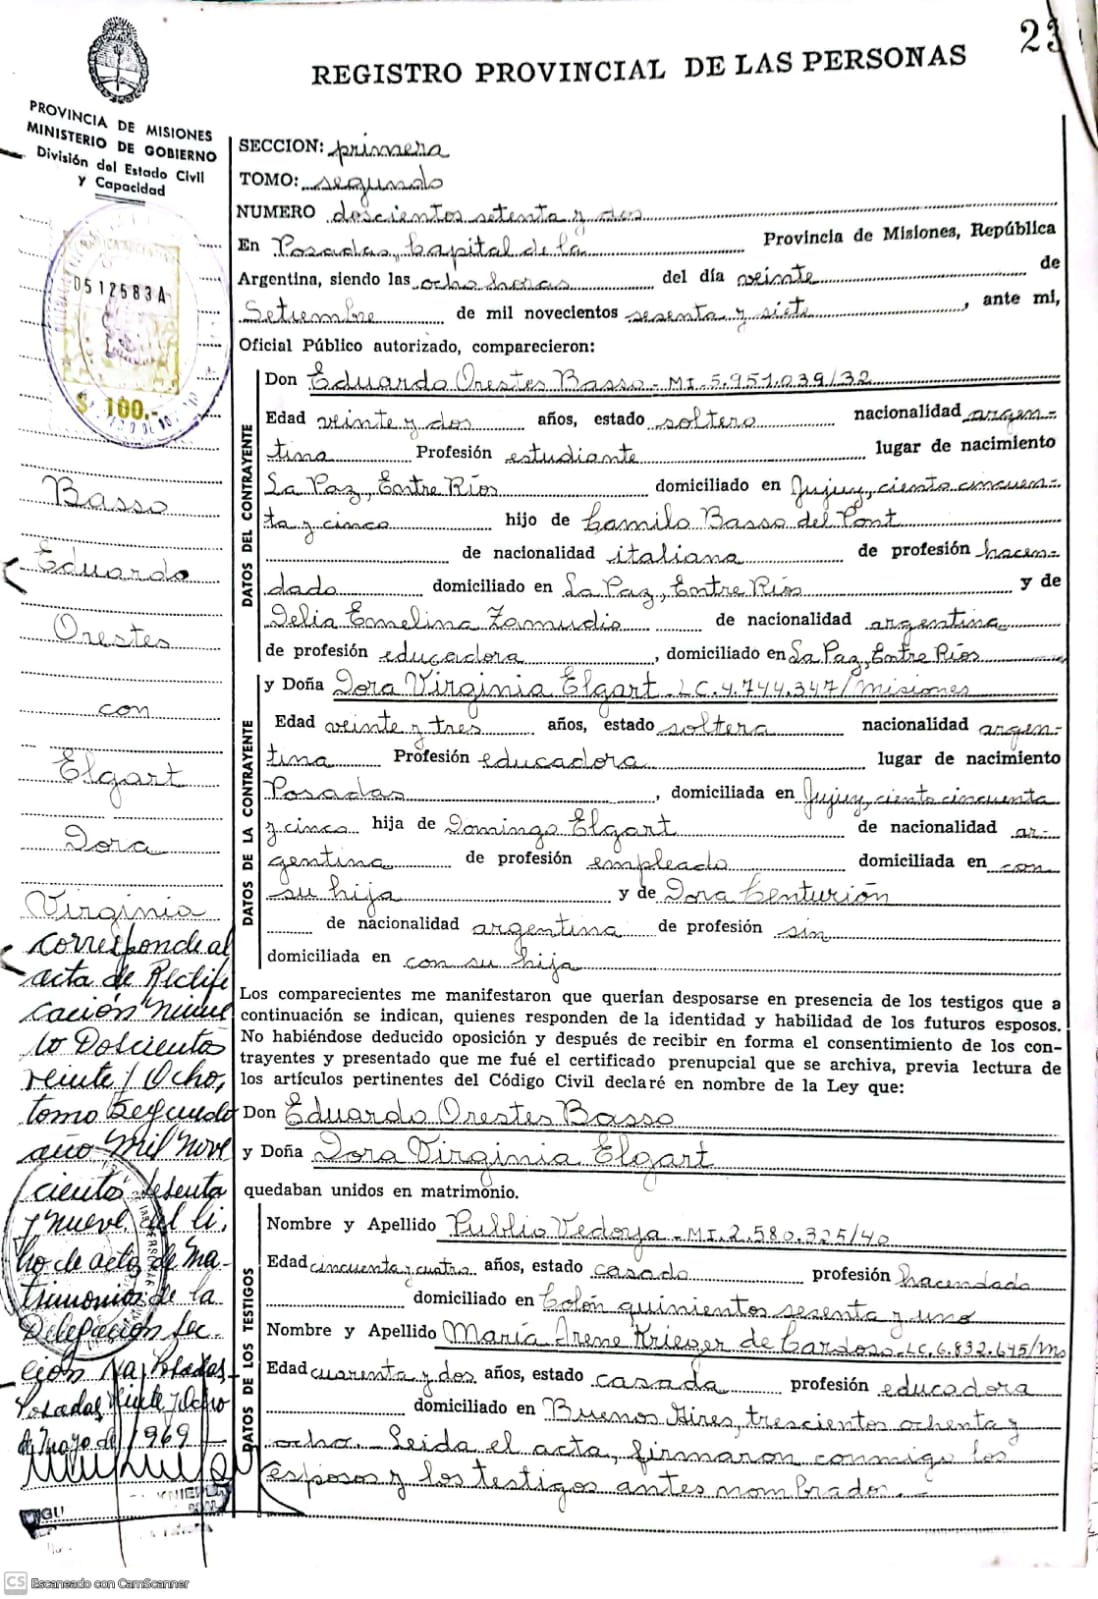 23
REGISTRO PROVINCIAL DE LAS PERSONAS
PROVINCIA DE MISIONES
MINISTERIO DE GOBIERNO
División del Estado Civil
y Capacidad
0512583A
$ 100.-
Basso
Eduardo
Orestes
con
Elgart
Dora
Virginia
corresponde al
acta de Rectifi
cación núme
ro Doscientos
veinte y Ocho,
tomo Segundo
año Mil nove
cientos sesenta
y nueve del li,
bro de actas de Ma-
trimonios de la
Delegación Sec.
ción 1ra, Posadas,
Posadas, Veinte y Ocho
de Mayo de 1969
SECCION: primera
TOMO: segundo
NUMERO doscientos setenta y dos
En Posadas, Capital de la Provincia de Misiones, República
Argentina, siendo las ocho horas del día veinte de
Setiembre de mil novecientos sesenta y siete, ante mi,
Oficial Público autorizado, comparecieron:
DATOS DEL CONTRAYENTE
Don Eduardo Orestes Basso - MI-5.951.039/32
Edad veinte y dos años, estado soltero nacionalidad argen-
tina Profesión estudiante lugar de nacimiento
La Paz, Entre Ríos domiciliado en Jujuy, ciento cincuen-
ta y cinco hijo de Camilo Basso del Pont
de nacionalidad italiana de profesión hacen-
dado domiciliado en La Paz, Entre Ríos y de
Delia Emelina Zamudio de nacionalidad argentina
de profesión educadora, domiciliado en La Paz, Entre Ríos
DATOS DE LA CONTRAYENTE
y Doña Dora Virginia Elgart - LC. 4.744.347/Misiones
Edad veinte y tres años, estado soltera nacionalidad argen-
tina Profesión educadora lugar de nacimiento
Posadas, domiciliada en Jujuy, ciento cincuenta
y cinco hija de Domingo Elgart de nacionalidad ar-
gentina de profesión empleado domiciliada en con
su hija y de Dora Centurión
de nacionalidad argentina de profesión sin
domiciliada en con su hija
Los comparecientes me manifestaron que querían desposarse en presencia de los testigos que a
continuación se indican, quienes responden de la identidad y habilidad de los futuros esposos.
No habiéndose deducido oposición y después de recibir en forma el consentimiento de los con-
trayentes y presentado que me fué el certificado prenupcial que se archiva, previa lectura de
los artículos pertinentes del Código Civil declaré en nombre de la Ley que:
Don Eduardo Orestes Basso
y Doña Dora Virginia Elgart
quedaban unidos en matrimonio.
DATOS DE LOS TESTIGOS
Nombre y Apellido Publio Vedoya - MI. 2.580.325/40
Edad cincuenta y cuatro años, estado casado profesión hacendado
domiciliado en Colón quinientos sesenta y uno
Nombre y Apellido María Irene Krieger de Cardoso - LC. 6.832.645/Ms
Edad cuarenta y dos años, estado casada profesión educadora
domiciliado en Buenos Aires, trescientos ochenta y
ocho. - Leída el acta, firmaron conmigo los
esposos y los testigos antes nombrados. -
CS Escaneado con CamScanner